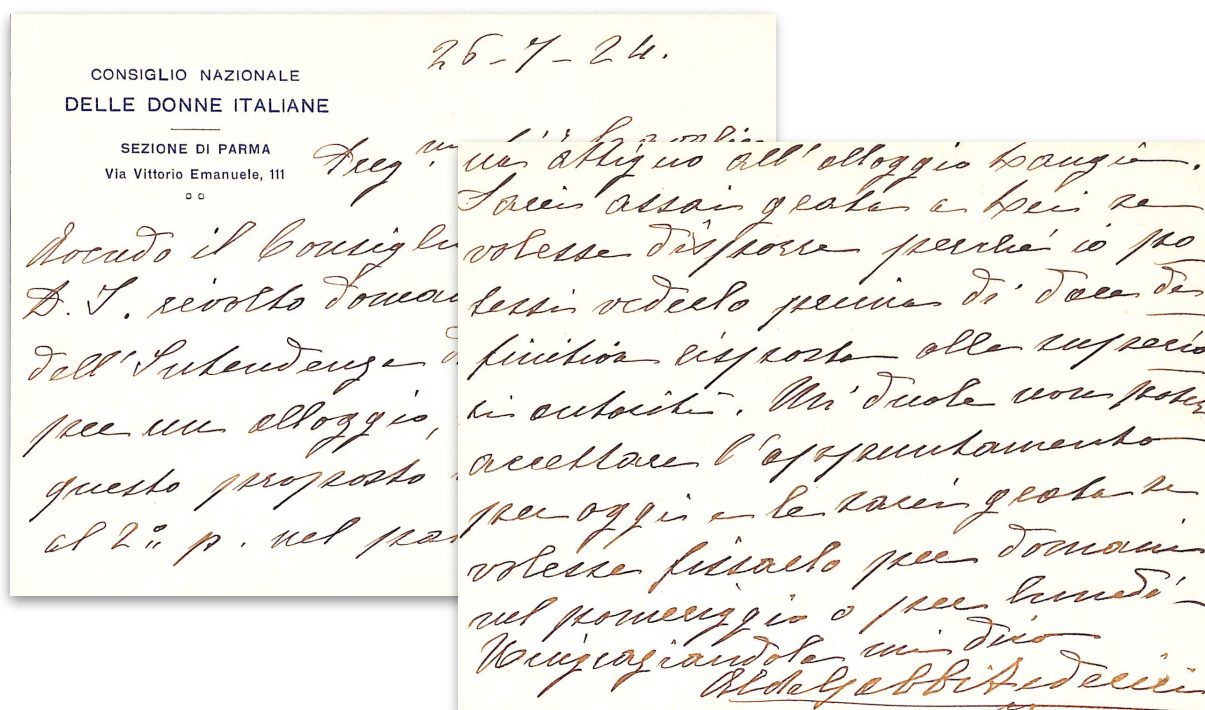 26-7-24.
CONSIGLIO NAZIONALE
DELLE DONNE ITALIANE
SEZIONE DI PARMA
Via Vittorio Emanuele, 111
Avendo il Consigl
D. I. rivolto doman
dell'Intendenza d
per un alloggio,
questo proposto
al 2º p. nel pa
attiguo all'alloggio
Sarei assai grata a Lei se
volesse disporre perché io po
tessi vederlo prima di dare de
finitiva risposta alle superio
ri autorità. Mi duole non poter
accettare l'appuntamento
per oggi e le sarei grata se
volesse fissarlo per domani
nel pomeriggio o per lunedì-
Ringraziandola mi dico
Alda Gabbi Federici